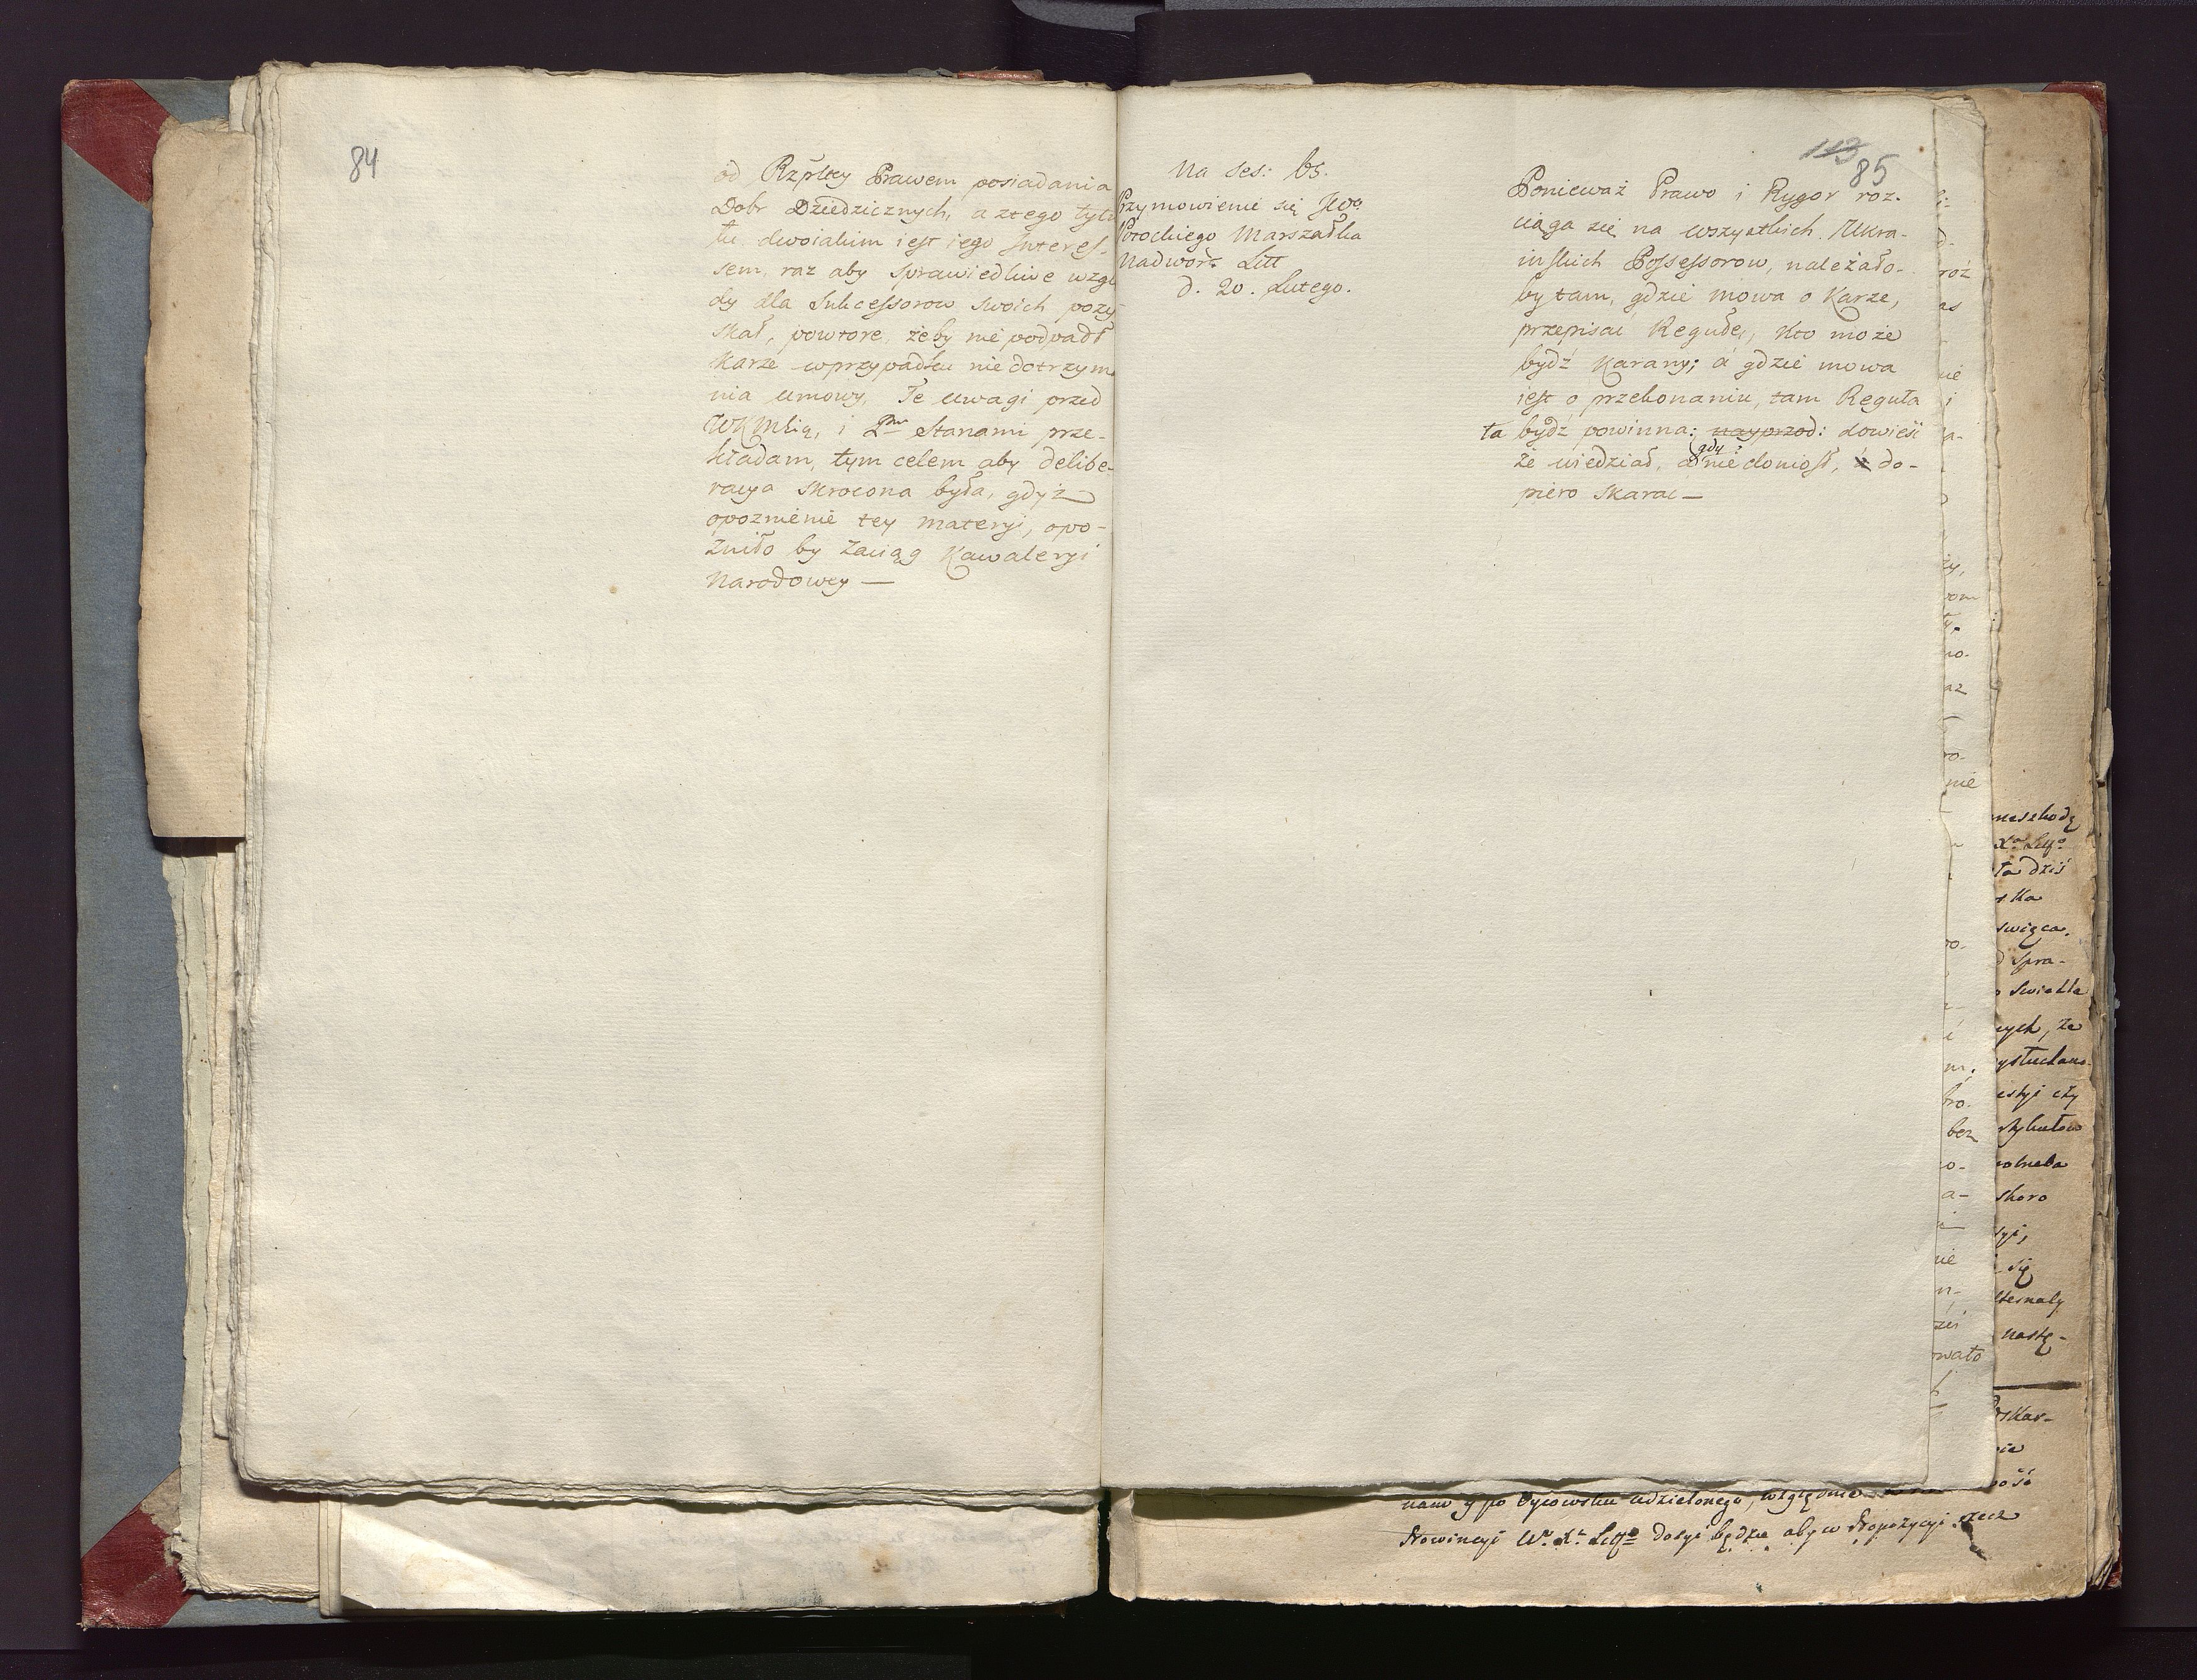 84
od Rzpltey Prawem posiadania
Dobr Dziedzicznych, a z tego tytu
łu dwoiakim iest iego Interes-
sem, raz aby sprawiedliwe wzglę
dy dla Sukcessorow swoich pozy
skał, powtore, żeby nie podpadł
karze w przypadku niedotrzyma
nia umowy, Te uwagi przed
WKMcią, i Stanami prze-
kładam, tym celem aby delibe-
racya skrocona była, gdyż
opoznienie tey materyi, opo-
zniło by Zaciąg Kawaleryi
Narodowey —
na ses: 65.
Przymowienie się JWo
Potockiego Marszałka
Nadwor. Litt
d. 20. Lutego.
113
85
Ponieważ Prawo i Rygor roz-
ciąga się na wszystkich Ukra-
inskich Possessorow, należało-
by tam, gdzie mowa o Karze,
przepisać Regułę, kto może
bydź karany; a gdzie mowa
iest o przekonaniu, tam Reguła
ta bydź powinna: nayprzod: dowieść
że wiedział, a gdy nie doniosł, i do-
piero skarać —
nam y po Oycowsku udzielonego, względnie
Prowincyi W. X. Litt dosyć będzie aby w Propozycyi rzecz